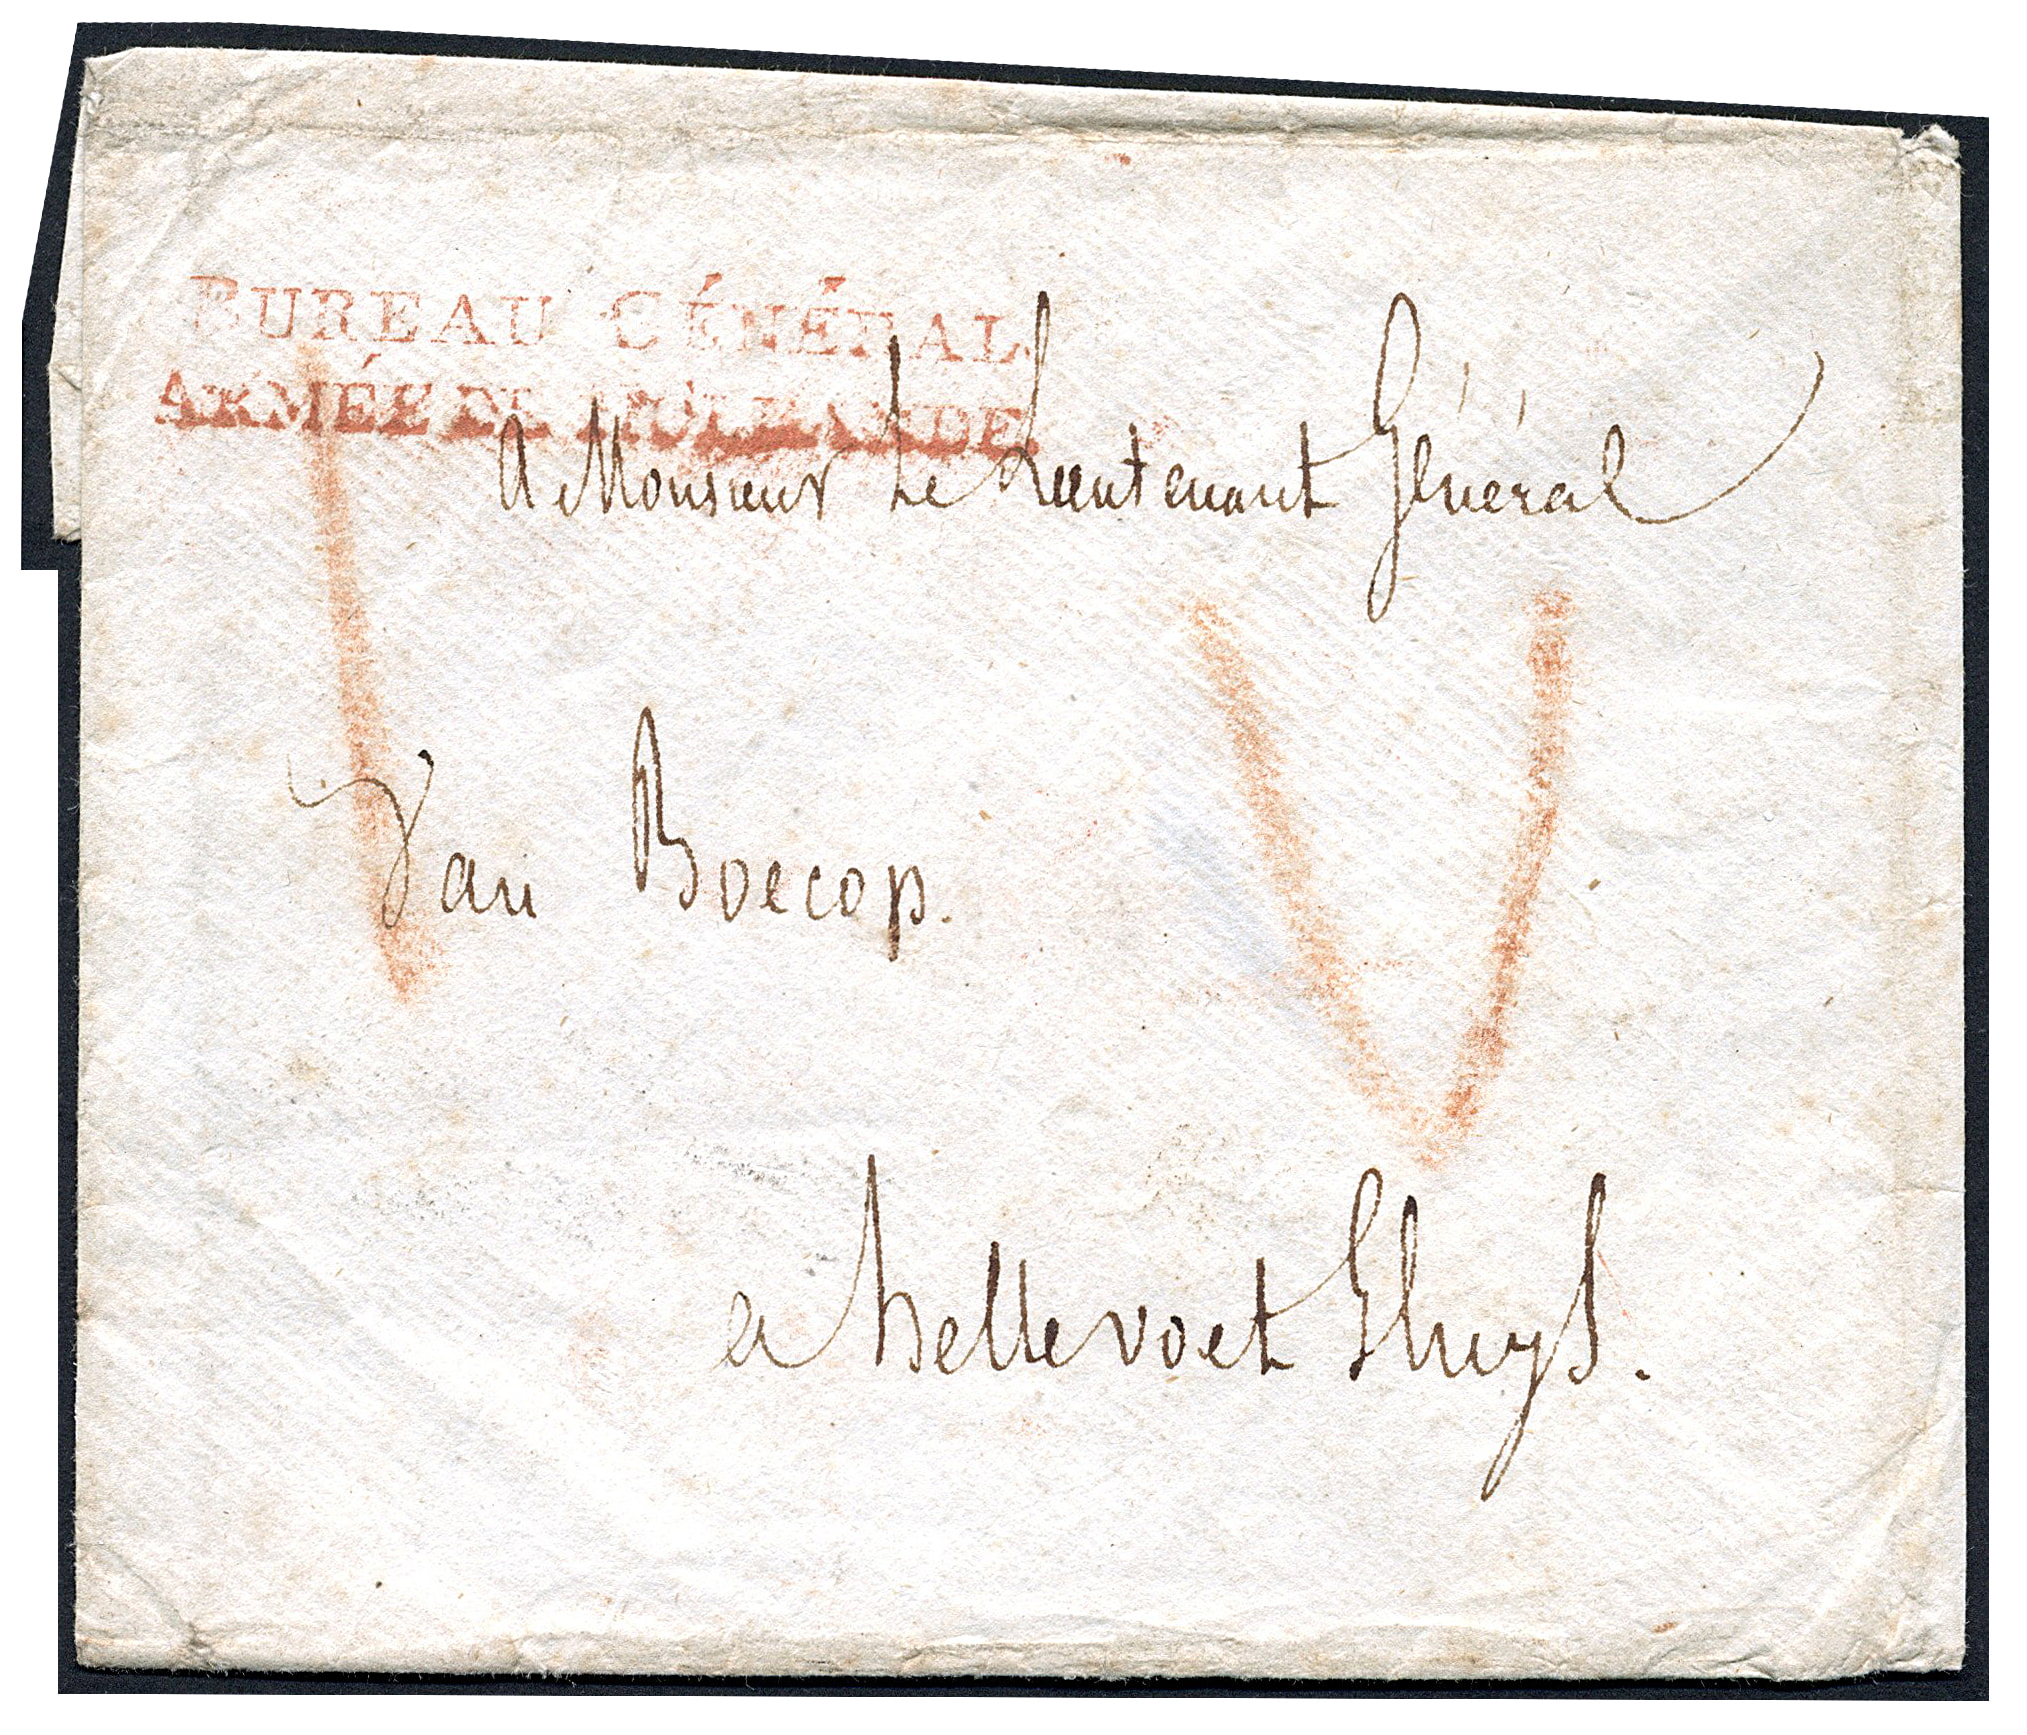 BUREAU GÉNÉRAL.
ARMÉE DE HOLLANDE.
A Monsieur Le Lieutenant Général
Van Boecop.
a hellevoet Sluys.